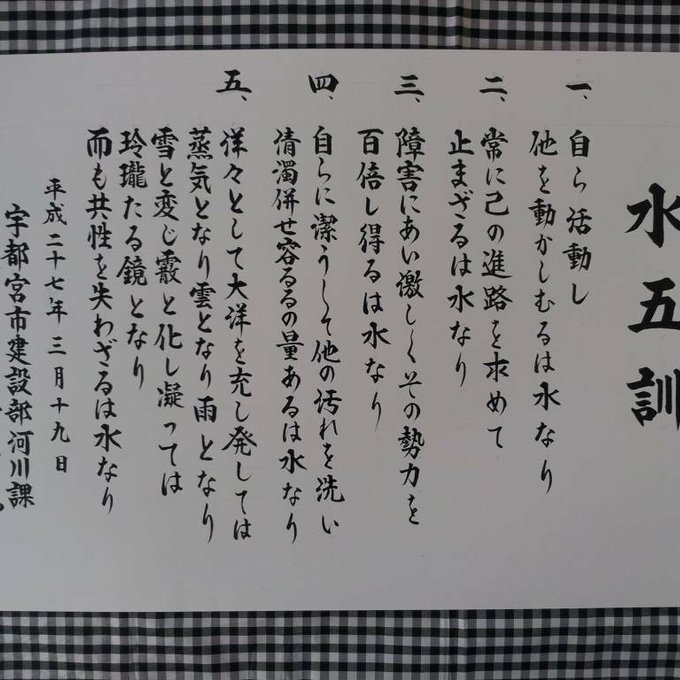 水五訓
一、自ら活動し
他を動かしむるは水なり
二、常に己の進路を求めて
止まざるは水なり
三、障害にあい激しくその勢力を
百倍し得るは水なり
四、自らに潔うして他の汚れを洗い
清濁併せ容るるの量あるは水なり
五、洋々として大洋を充し発しては
蒸気となり雲となり雨となり
雪と変じ霰と化し凝っては
玲瓏たる鏡となり
而も其性を失わざるは水なり
平成二十七年三月十九日
宇都宮市建設部河川課